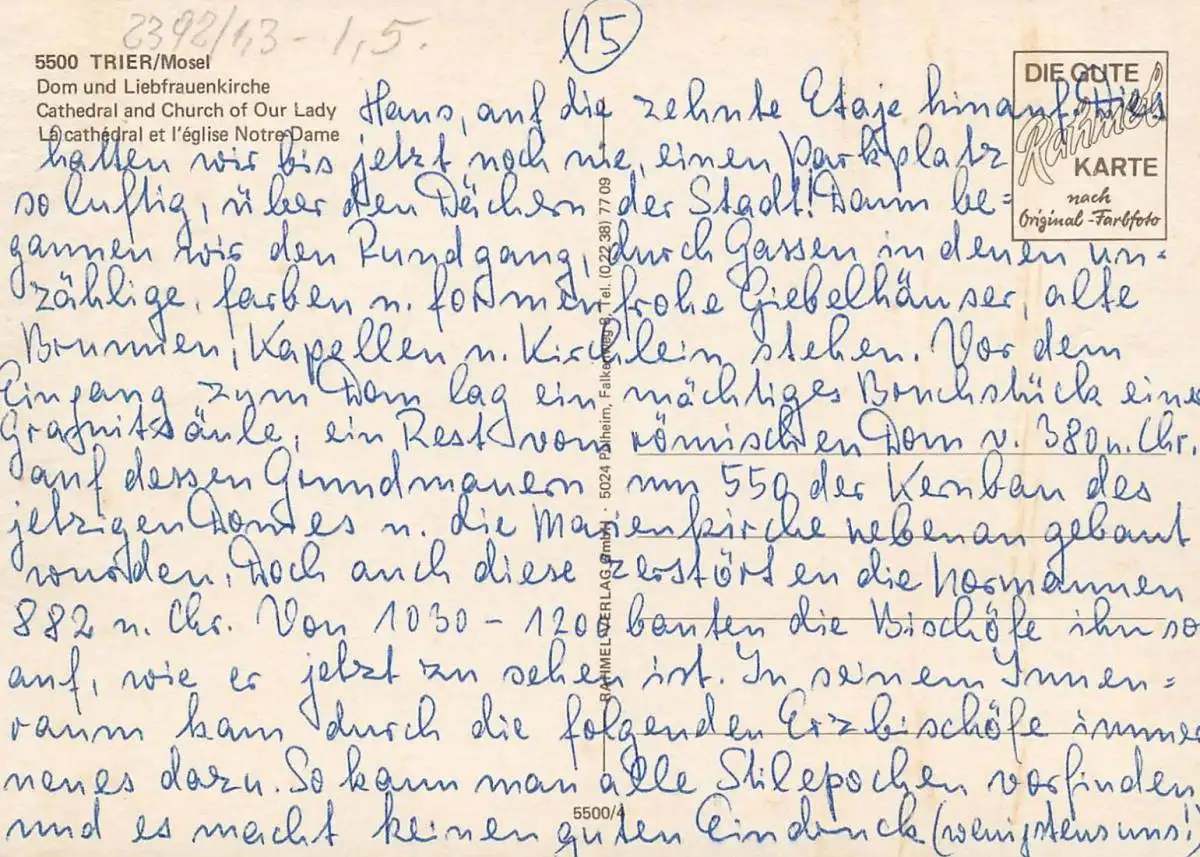 2392/1,3 - 1,5.
15
5500 TRIER/Mosel
Dom und Liebfrauenkirche
Cathedral and Church of Our Lady
La cathédral et l'église Notre Dame
DIE GUTE
Rahmel
KARTE
nach
Original-Farbfoto
Haus, auf die zehnte Etaje hinauf.
hatten wir bis jetzt noch nie, einen Parkplatz
so luftig, über den Dächern der Stadt! Dann be=
gannen wir den Rundgang, durch Gassen in denen un-
zählige, farben u. formenfrohe Giebelhäuser, alte
Brunnen, Kapellen u. Kirchlein stehen. Vor dem
Eingang zum Dom lag ein mächtiges Bruchstück einer
Granitsäule, ein Rest von römischen Dom v. 380 n. Chr.
auf dessen Grundmauern um 550 der Kernbau des
jetzigen Domes u. die Marienkirche nebenan gebaut
wurden. Doch auch diese zerstörten die Normannen
882 n. Chr. Von 1030 - 1200 bauten die Bischöfe ihn so
auf, wie er jetzt zu sehen ist. In seinem Innen=
raum kam durch die folgenden Erzbischöfe immer
neues dazu. So kann man alle Stilepochen vorfinden
und es macht keinen guten Eindruck (wenigstens uns!)
RAHMEL-VERLAG GmbH · 5024 Pulheim, Falkenweg 8, Tel. (0 22 38) 77 09
5500/4